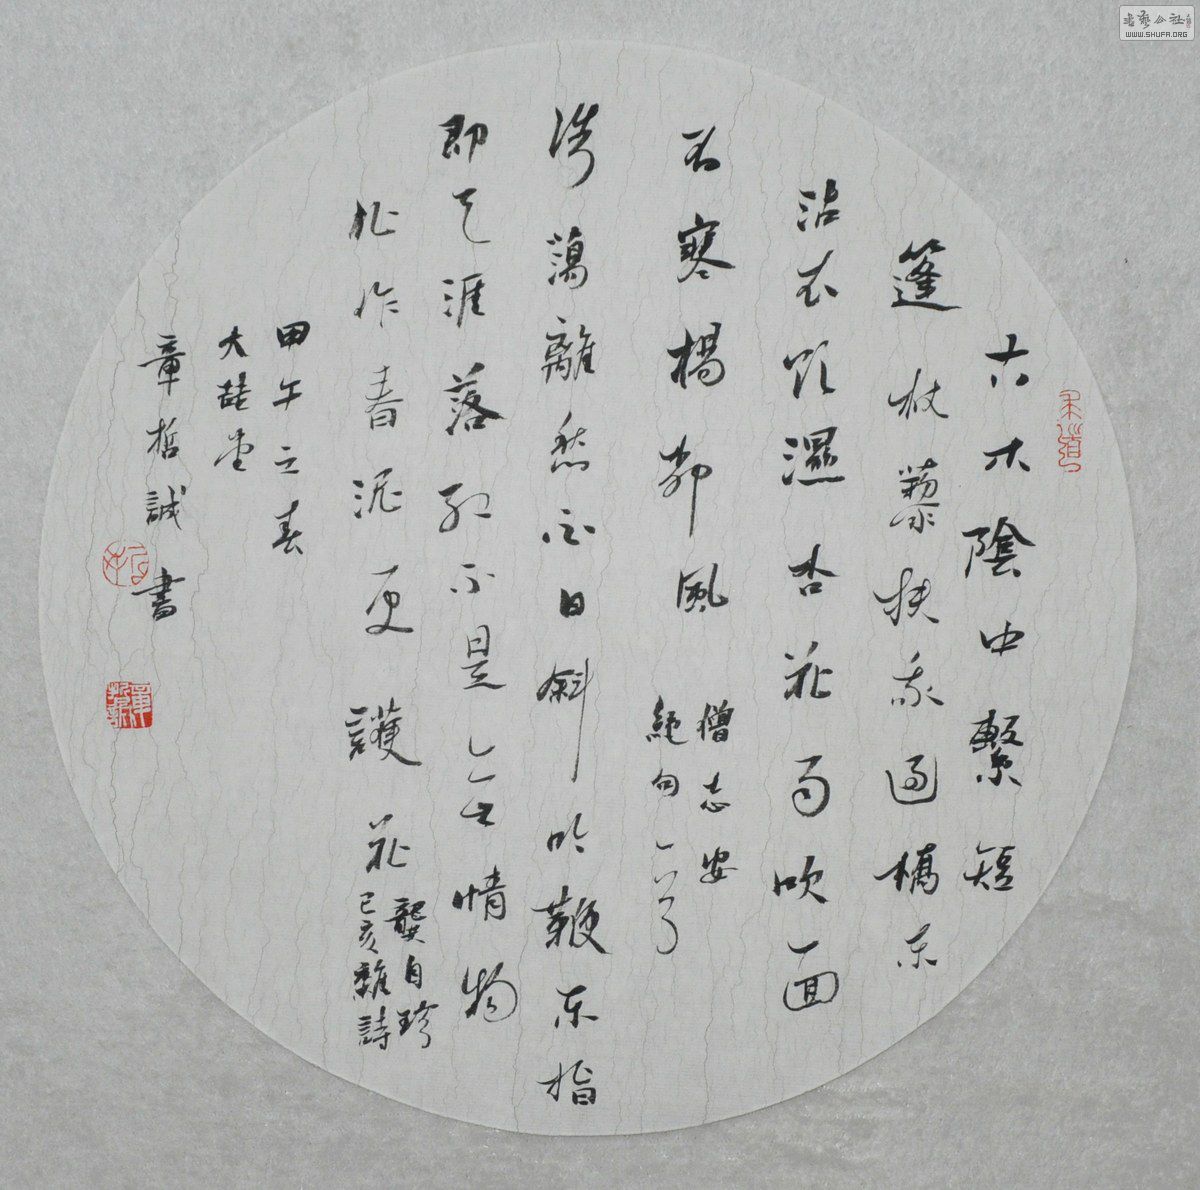 古木陰中繫短
篷杖藜扶我過橋東
沾衣欲濕杏花雨吹面
不寒楊柳風
僧志安
絕句一首
浩蕩離愁白日斜吟鞭東指
即天涯落紅不是無情物
化作春泥更護花
龔自珍
己亥雜詩
甲午之春
大堂
章哲誠書
WWW.SHUFA.ORG